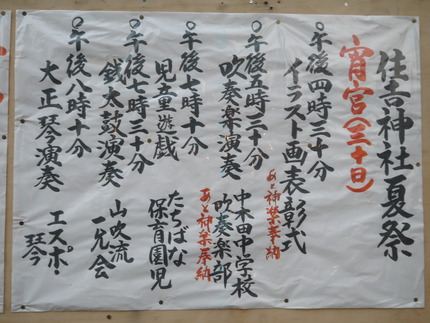 住吉神社夏祭
宵宮(三十日)
○午後四時三十分
イラスト画表彰式
あと神楽奉納
○午後五時三十分
吹奏楽演奏
中木田中学校
吹奏楽部
あと神楽奉納
○午後七時十分
児童遊戯
たちばな
保育園児
○午後七時三十分
銭太鼓演奏
山吹流
一光会
○午後八時十分
大正琴演奏
エスポ・
琴